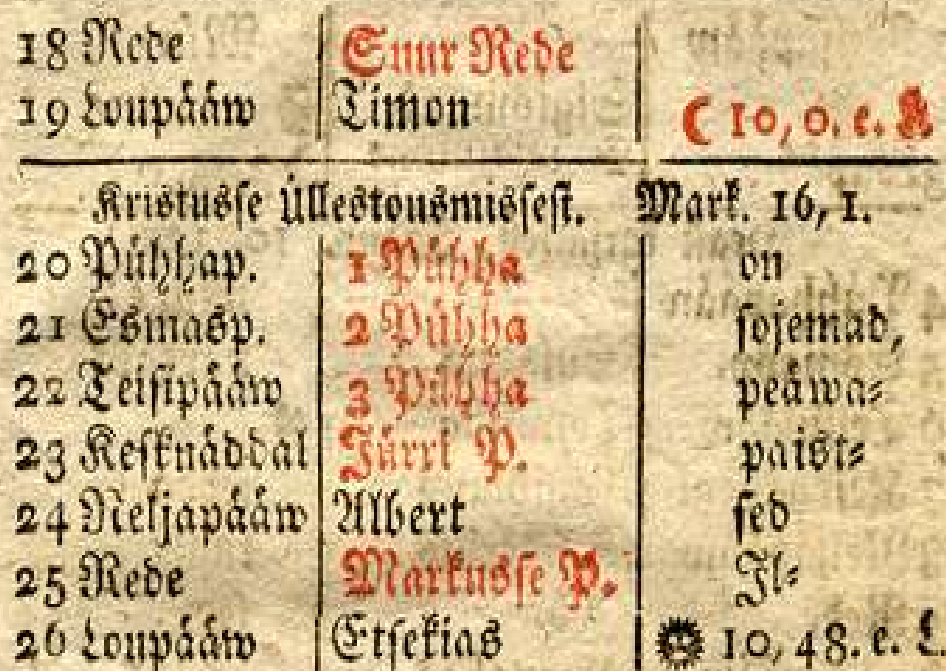 18 Rede Suur Rede
19 Loupääw Timon ☾ 10, 0. e. L
Kristusse üllestousmissest. Mark. 16, 1.
20 Pühhap. 1 Pühha on
21 Esmasp. 2 Pühha sojemad,
22 Teisipääw 3 Pühha peäwa-
23 Kesknäddal Jürri P. paist-
24 Neljapääw Albert sed
25 Rede Markusse P. Il-
26 Loupääw Etsekias 10, 48. e. L.